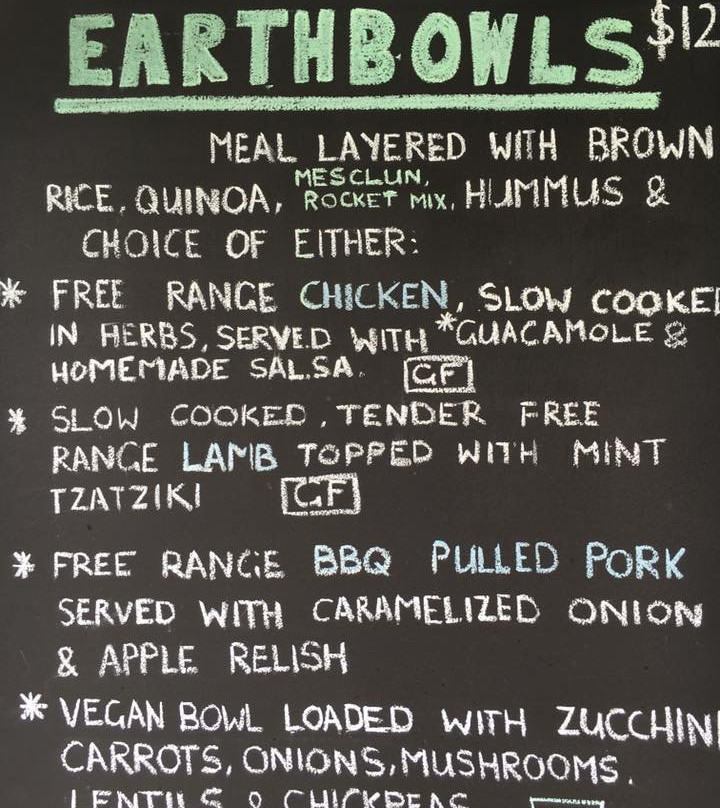 EARTHBOWLS $12
MEAL LAYERED WITH BROWN
RICE, QUINOA, MESCLUN, ROCKET MIX, HUMMUS &
CHOICE OF EITHER:
* FREE RANGE CHICKEN, SLOW COOKED
IN HERBS, SERVED WITH *GUACAMOLE &
HOMEMADE SALSA. GF
* SLOW COOKED, TENDER FREE
RANGE LAMB TOPPED WITH MINT
TZATZIKI GF
* FREE RANGE BBQ PULLED PORK
SERVED WITH CARAMELIZED ONION
& APPLE RELISH
* VEGAN BOWL LOADED WITH ZUCCHINI
CARROTS, ONIONS, MUSHROOMS.
LENTILS & CHICKPEAS